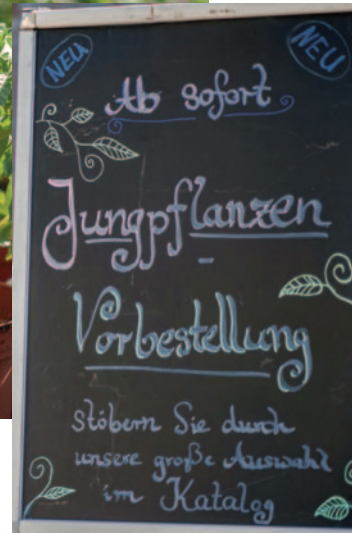 NEU NEU
Ab sofort
Jungpflanzen
-
Vorbestellung
stöbern Sie durch
unsere große Auswahl
im Katalog